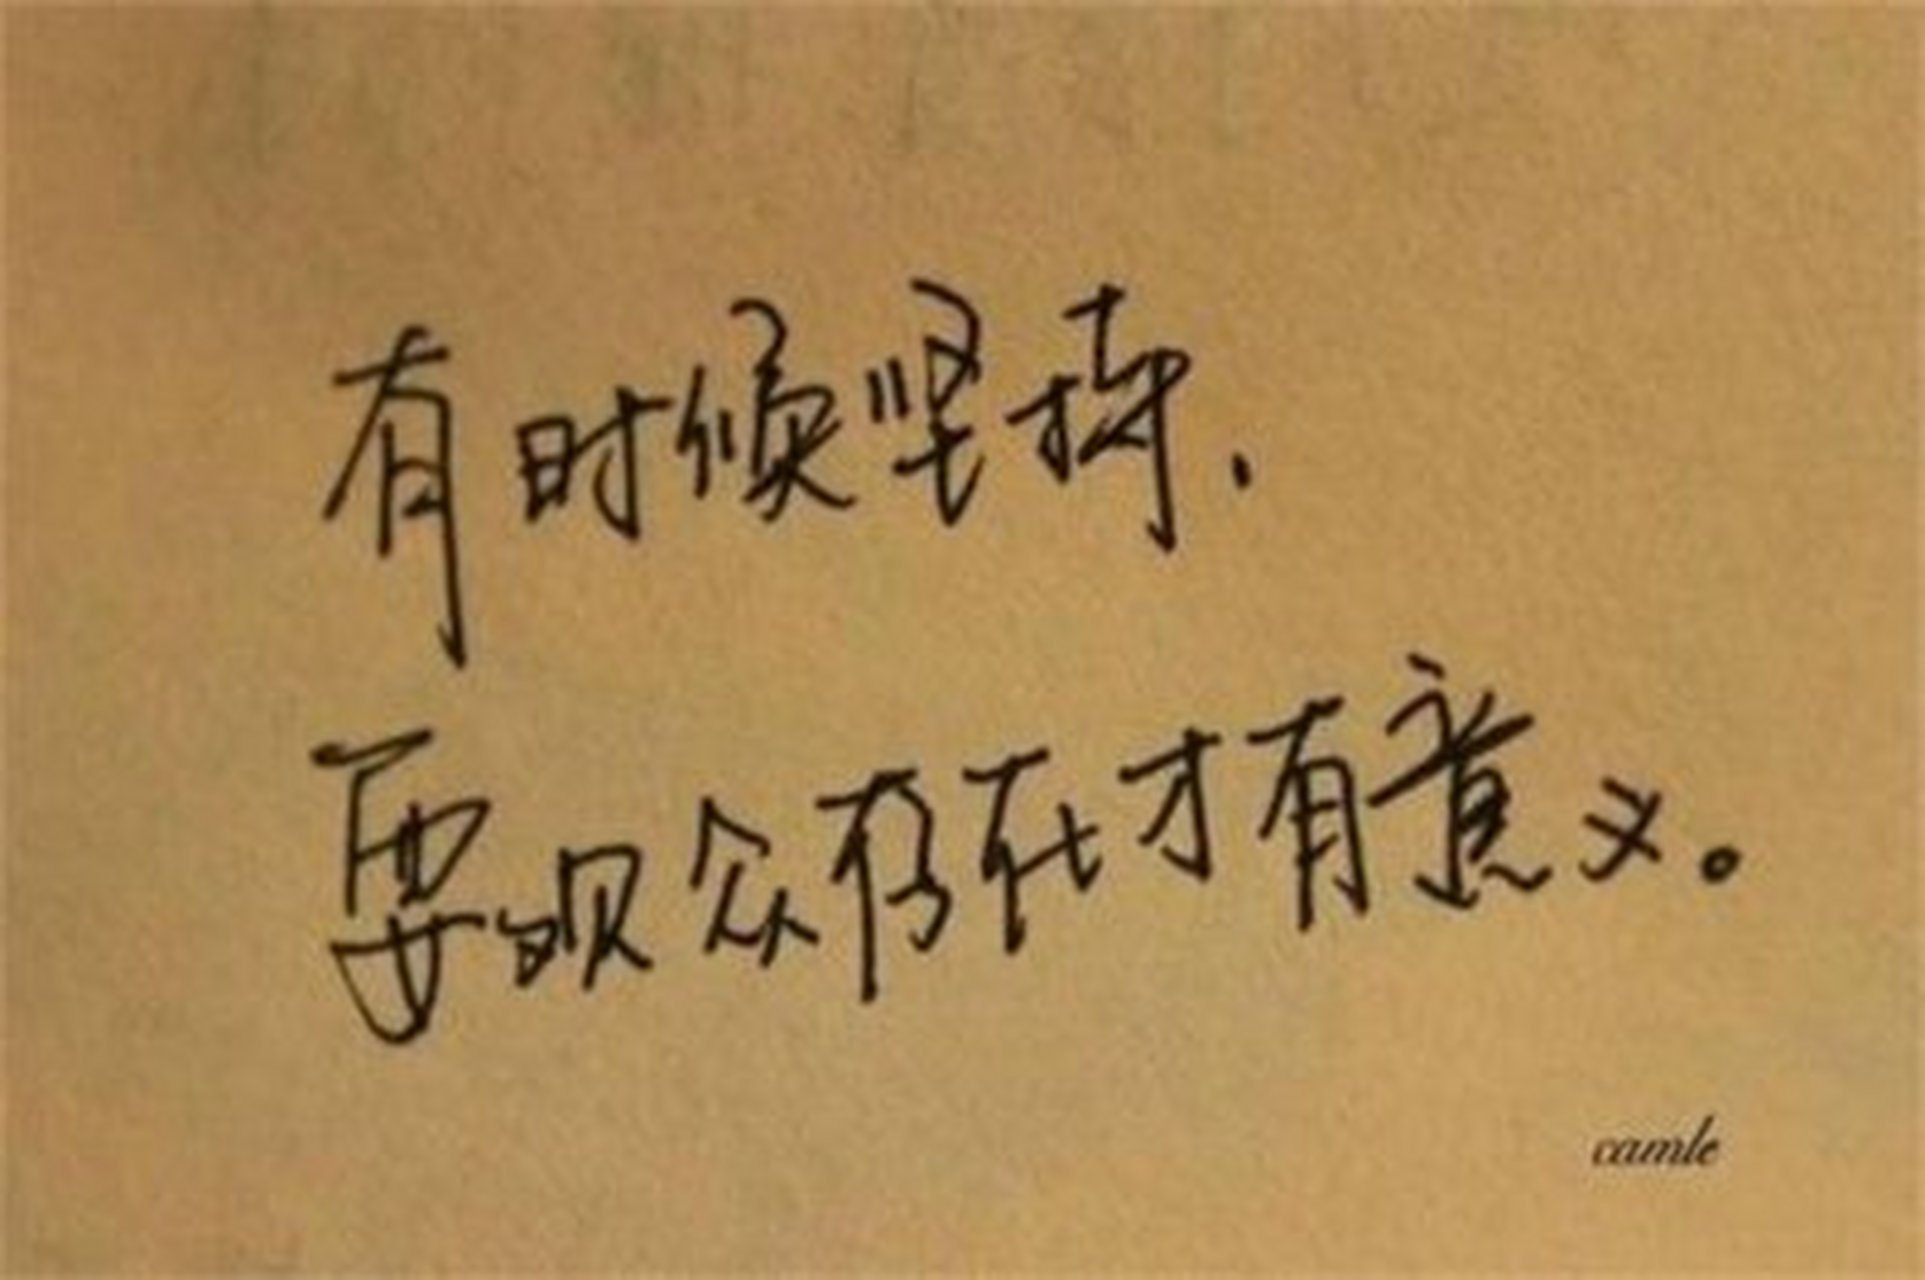 有时候坚持,
要观众存在才有意义。
camle